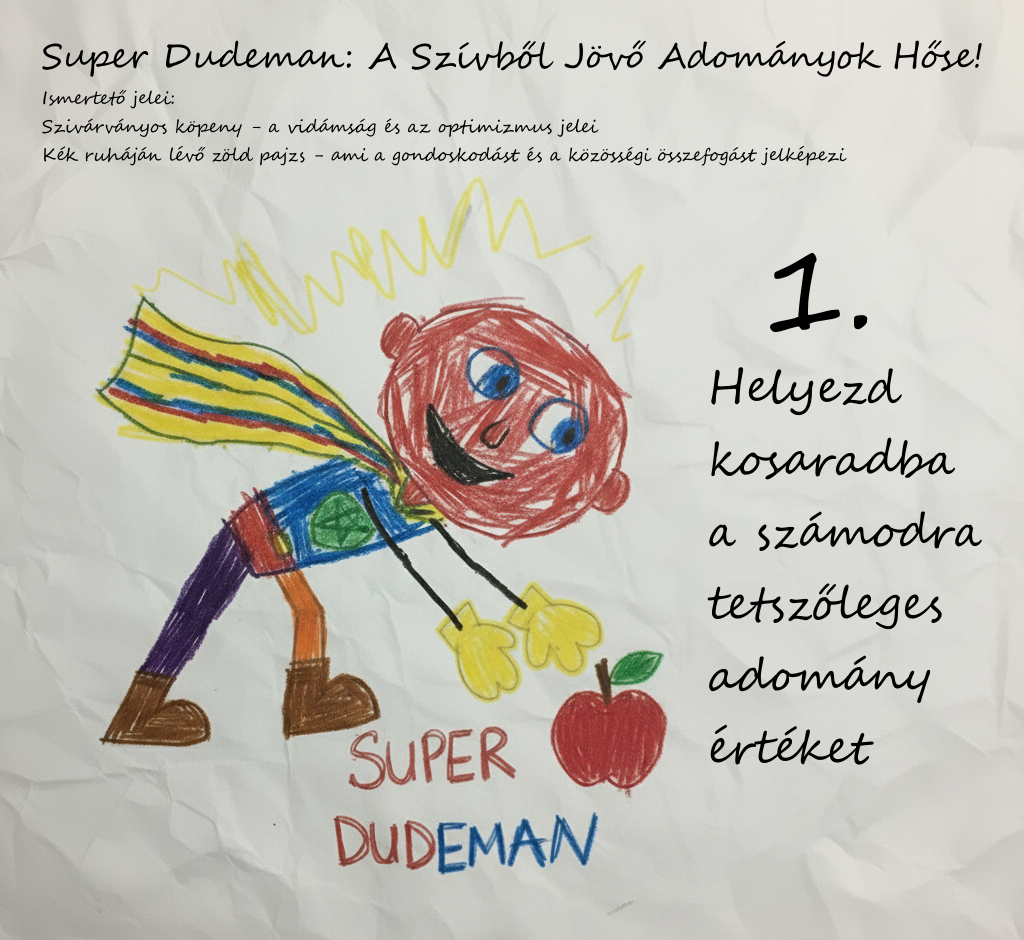 Super Dudeman: A Szívből Jövő Adományok Hőse!
Ismertető jelei:
Szivárványos köpeny - a vidámság és az optimizmus jelei
Kék ruháján lévő zöld pajzs - ami a gondoskodást és a közösségi összefogást jelképezi
1.
Helyezd
kosaradba
a számodra
tetszőleges
adomány
értéket
SUPER
DUDEMAN